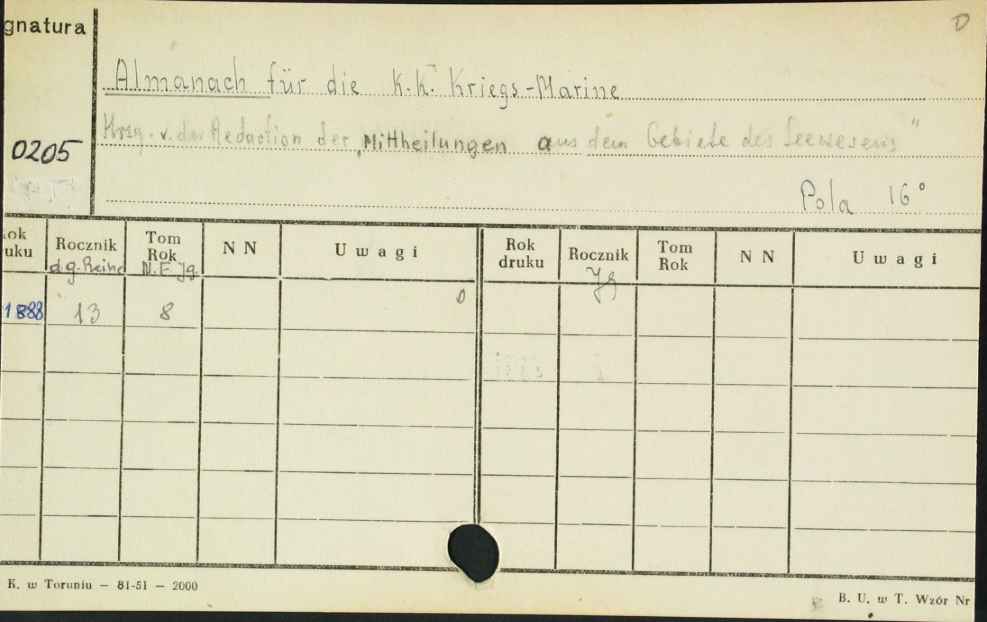 gnatura
D
Almanach für die K.K. Kriegs-Marine
Hrsg. v. der Redaction der „Mittheilungen aus dem Gebiete des Seewesens"
0205
Pola 16°
ok uku Rocznik Tom Rok N N Uwagi Rok druku Rocznik Tom Rok N N Uwagi
d.g. Reihe N.F. Jg. Jg
1888 13 8 D
K. w Toruniu — 81-51 — 2000
B. U. w T. Wzór Nr